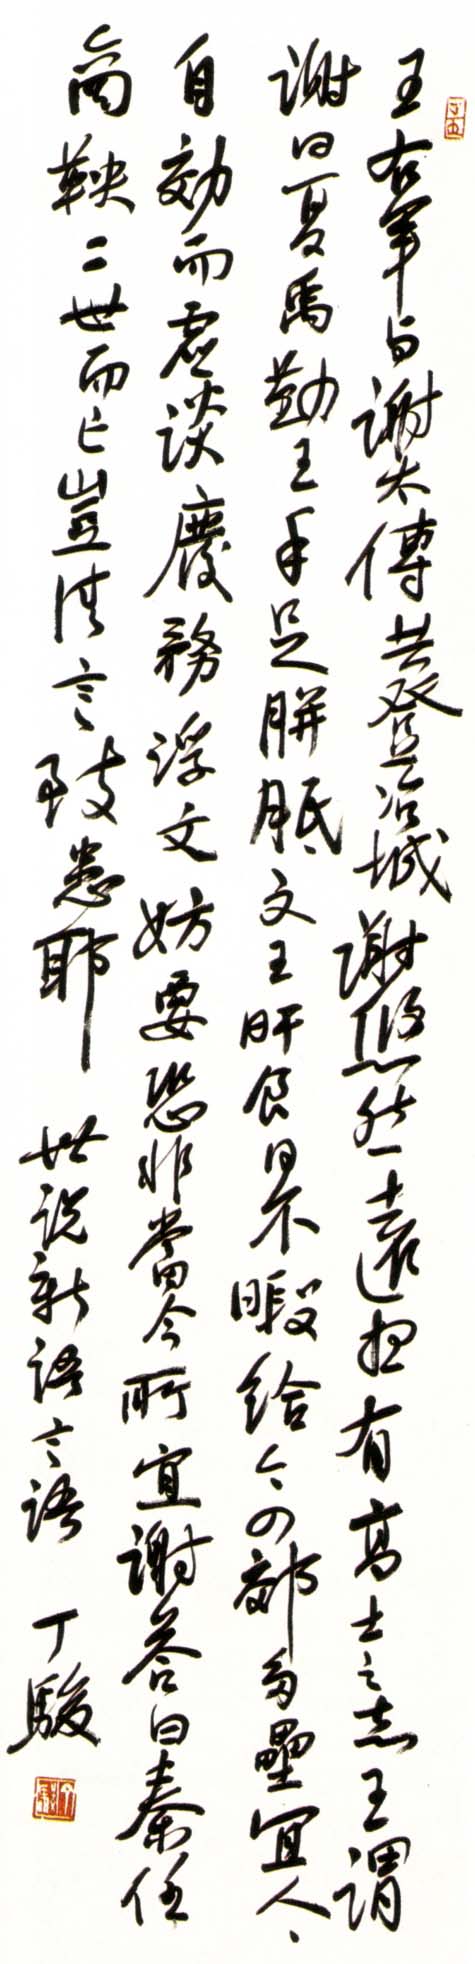 王右軍与謝太傅共登冶城謝悠然遠想有高士之志王謂
謝曰夏禹勤王手足胼胝文王旰食日不暇給今四郊多壘宜人人
自効而虛談廢務浮文妨要恐非當今所宜謝答曰秦任
商鞅二世而亡豈清言致患耶 世說新語言語 丁駿